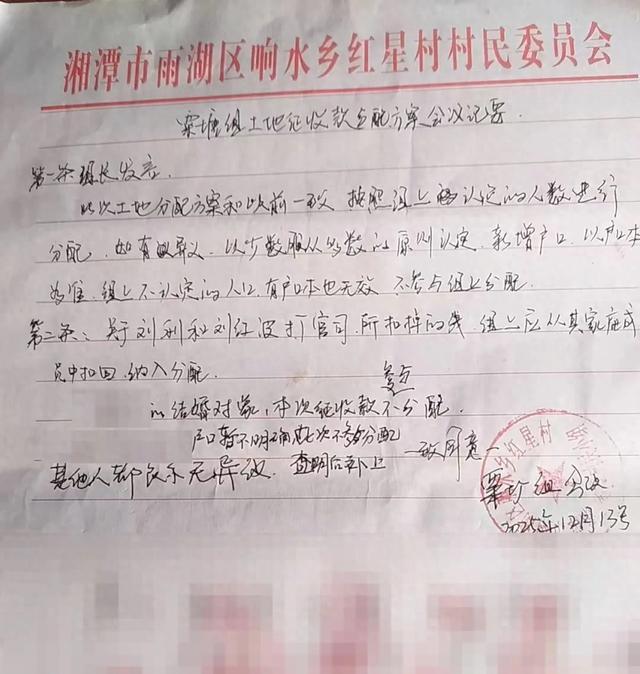 湘潭市雨湖区响水乡红星村村民委员会
栗塘组土地征收款分配方案会议记要
第一条组长发言.
此次土地分配方案和以前一致 按照组上的认定的人数进行
分配, 如有异义, 以少数服从多数的原则认定, 新增户口, 以户口本
为准, 组上不认定的人口, 有户口本也无效 不参与组上分配.
第二条: 关于刘利和刘红波打官司, 所扣掉的钱, 组上应从其家庭成
员中扣回, 纳入分配.
以结婚对象, 本次征收款不分配.
户口暂不明确此次不参分配 一致同意
其他人都表示无异议. 查明后补上
红星村
组会议
2025年12月13号